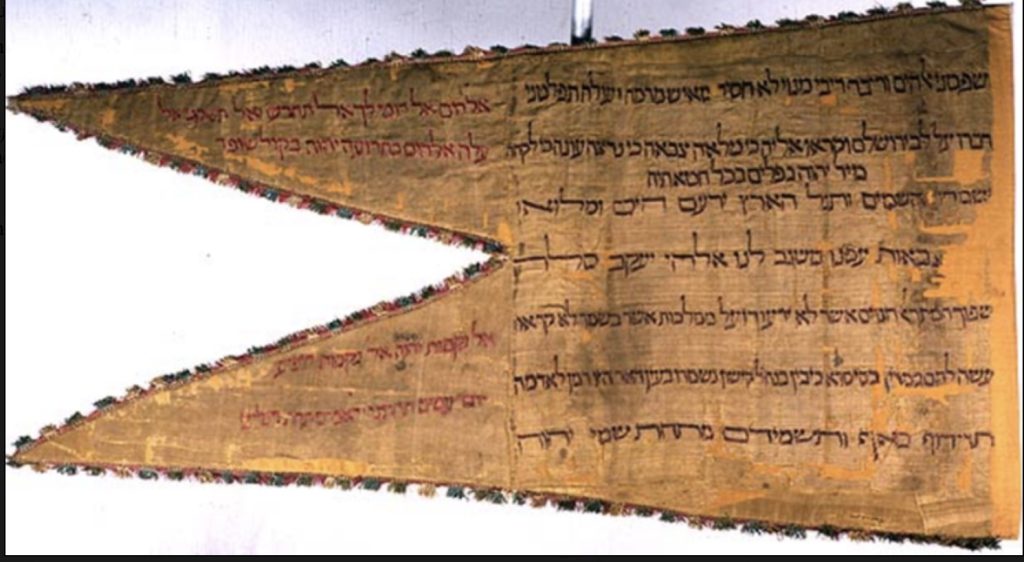 שפטני אלהים וריבה ריבי מגוי לא חסיד מאיש מרמה ועולה תפלטני
דברו על לב ירושלם וקראו אליה כי מלאה צבאה כי נרצה עונה כי לקחה
מיד יהוה כפלים בכל חטאתיה
ישמחו השמים ותגל הארץ ירעם הים ומלואו
צבאות עמנו משגב לנו אלהי יעקב סלה
שפוך חמתך הגוים אשר לא ידעוך ועל ממלכות אשר בשמך לא קראו
עשה להם כמדין כסיסרא כיבין בנחל קישון נשמדו בעין דאר היו דמן לאדמה
תרדוף באף ותשמידם מתחת שמי יהוה
אלהים אל דומי לך אל תחרש ואל תשקט אל
עלה אלהים בתרועה יהוה בקול שופר
אל נקמות יהוה אל נקמות הופיע
עמים תחתינו ולאמים תחת רגלינו